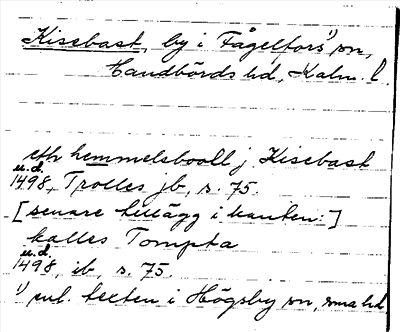 Kisebast, by i Fågelfors¹⁾ sn,
Handbörds hd, Kalm. l.
eth hemmelsbooll j Kisebast
u.d.
1498, Trolles jb, s. 75.
[senare tillägg i kanten:]
kalles Tompta
u.d.
1498, ib, s. 75.
¹⁾ enl. texten i Högsby sn, sma hd